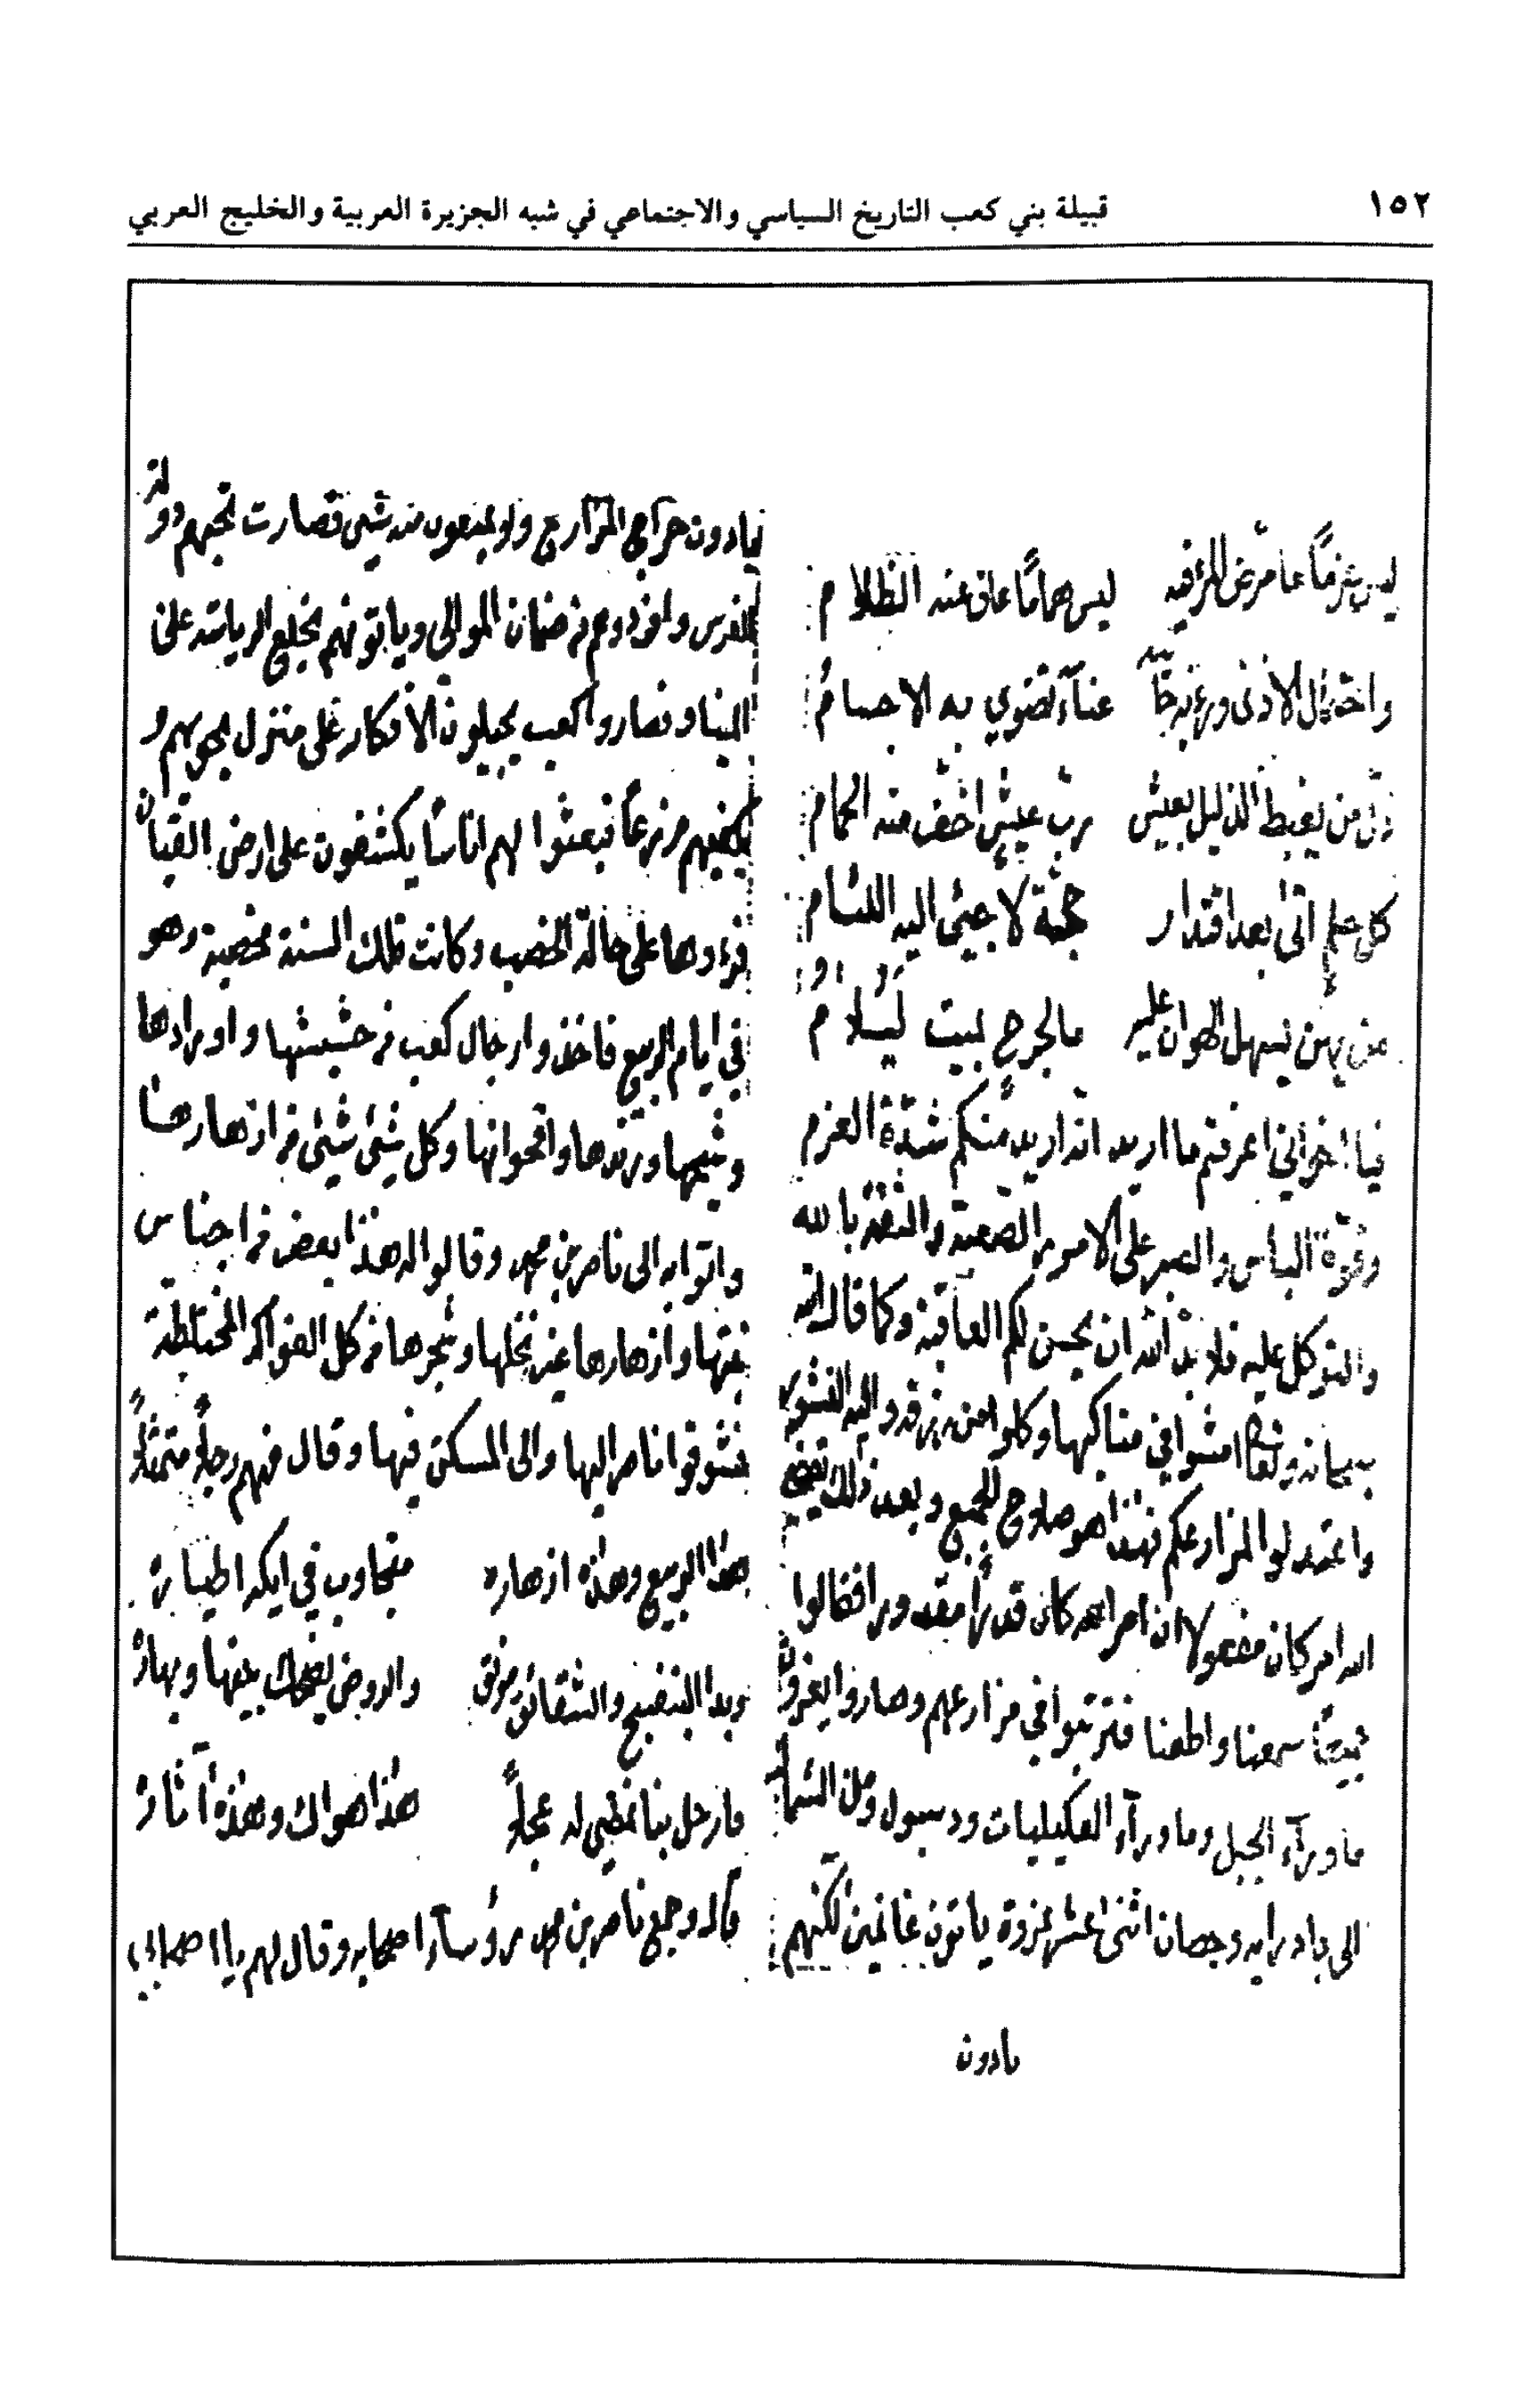 ١٥٢
قبيلة بني كعب التاريخ السياسي والاجتماعي في شبه الجزيرة العربية والخليج العربي
ليس عزماً ما مرض المرء فيه ليس هماماً عاق عنه الظلام
واحتمال الاذى ورؤية جانيه غذآء تضوي به الاجسام
ذل من يغبط الذليل بعيش رب عيش اخف منه الحمام
كل حلم اتى بعد اقتدار حجة لا جئى اليه اللئام
من يهن يسهل الهوان عليه ما لجرح بميت ايلام
فيا اخواني اعرفتم ما اريد انه اريد منكم شدّة العزم
وقوّة البأس والصبر على الامور الصعبة والثقة بالله
والتوكل عليه فلا بدّ الله ان يحسن لكم العاقبة وكما قال الله
سبحانه وتعالى امشوا في مناكبها وكلوا من رزقه واليه النشور
واعتمدلوا المزارعكم فهذا هو صلاح للجميع وبعد ذلك يقضي
الله امر كان مفعولا ان امر الله كان قدراً مقدورا فقالوا
جميعاً سمعنا واطعنا فترتبوا في مزارعهم وصاروا يغزون
ما ورآء الجبل وما ورآء العكيليات ودسبول ومن الشمال
الى بادرايه وجصان اثنى عشر غزوة يأتون غانمين لكنهم
يادون
يادون خراج المزارع ولو يمنعون منه شيئ فصارت تجبهم دولة
الفرس واخذوهم من ضمان الموالي وياتونهم بخلع الرياسة على
البنادر فصاروا كعب يجيلون الافكار على منزل يحويهم و
يكفيهم مزرعاً فبعثوا لهم اناساً يكشفون على ارض القبان
فرءوها على حالة الخصب وكانت تلك السنة مخصبة وهو
في ايام الربيع فاخذوا رجال كعب من حشيشها واورادها
وشيحها ورندها واقحوانها وكل شيئ شيئ من ازهارها
واتوا به الى ناصر بن محمد وقالوا له هذا بعض من اجناس
نبتها وازهارها غير نخلها وشجرها من كل الفواكه المختلطة
فتشوقوا ناصر اليها والى المسكن فيها وقال فيهم رجلاً متمثلاً
هذا الربيع وهذه ازهاره متجاوب في ايكه اطياره
وبدا البنفسج والشقائق مونق والروض يضحك بينها وبهاره
فارحل بنا نمضي له عجلاً هذا هواك وهذه آثاره
قال وجمع ناصر بن محمد رؤسآء اصحابه وقال لهم يا اصحابي